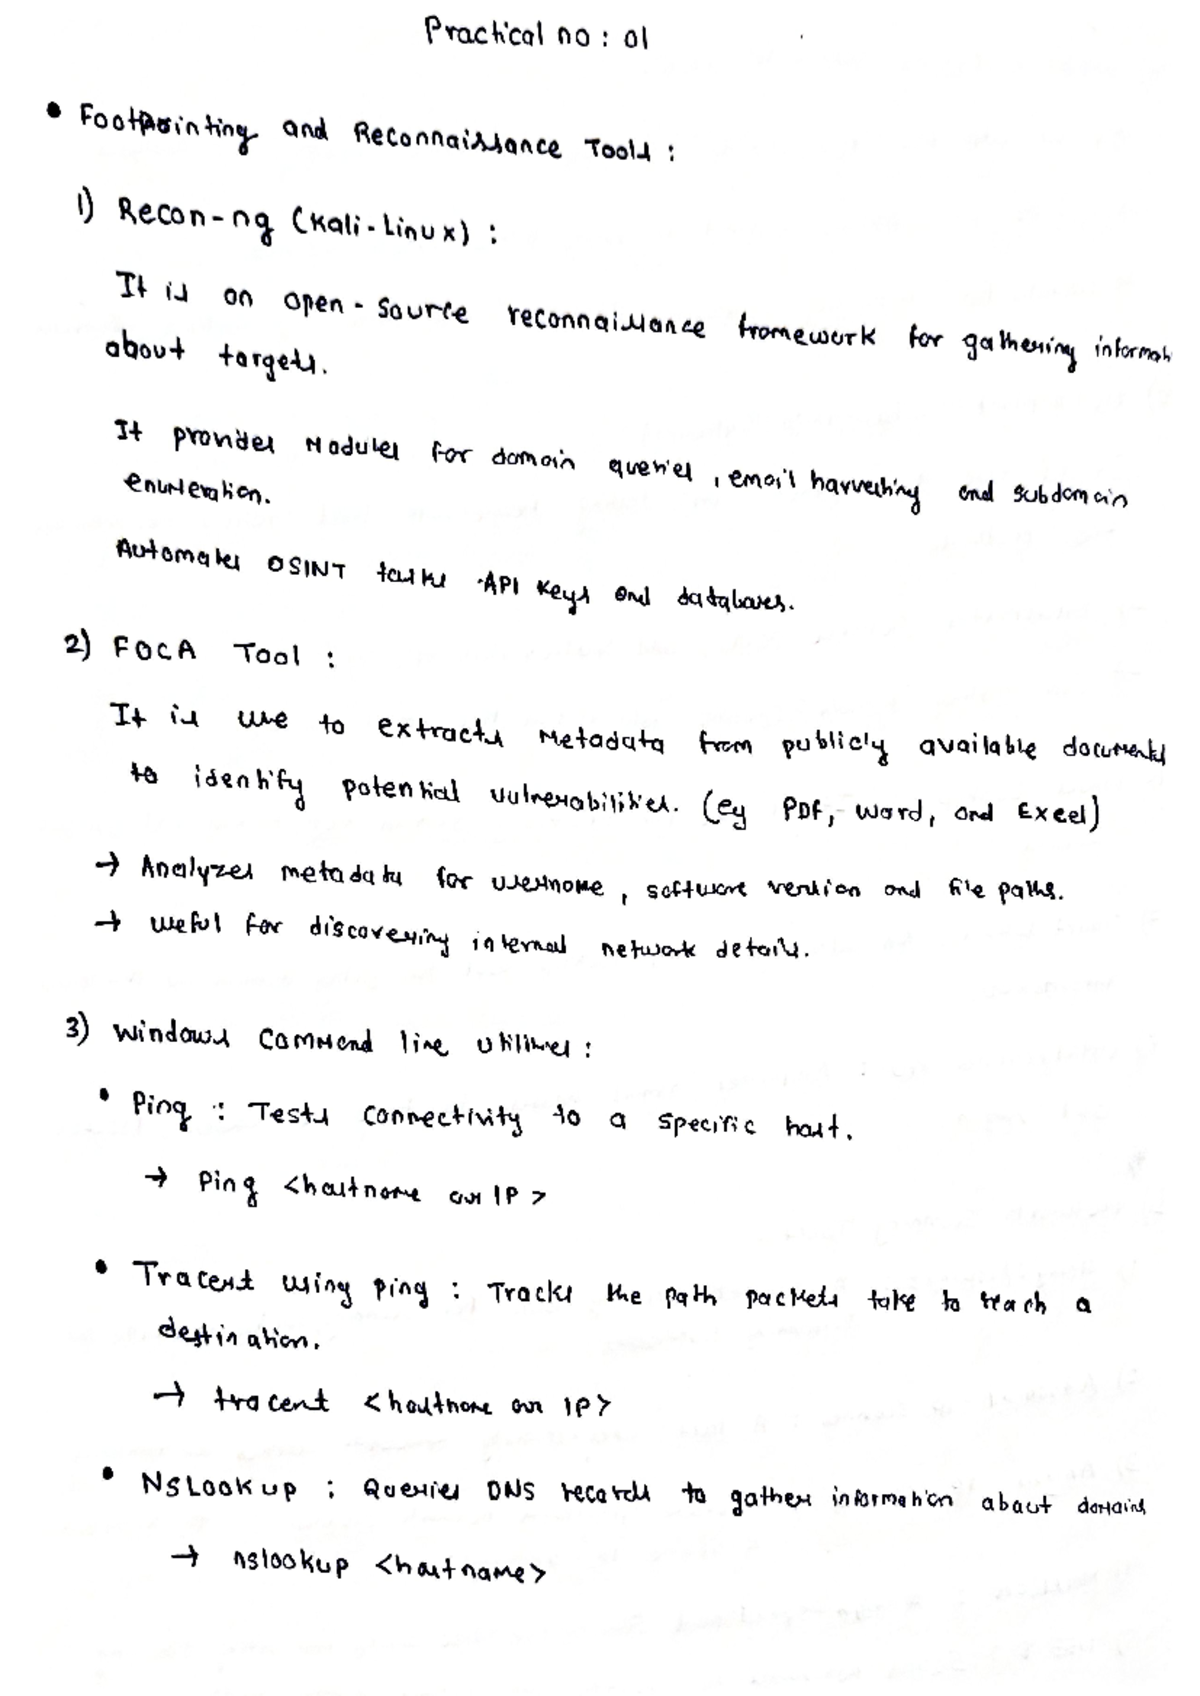 Practical no : 01
• Footprinting and Reconnaissance Tools :
1) Recon-ng (Kali-Linux) :
It is an open-source reconnaissance framework for gathering informati
about targets.
It provides Modules for domain queries, email harvesting and subdomain
enumeration.
Automates OSINT tasks API Keys and databases.
2) FOCA Tool :
It is use to extracts Metadata from publicly available documents
to identify potential vulnerabilities. (eg PDF, Word, and Excel)
→ Analyzes metadata for username, software version and file paths.
→ useful for discovering internal network details.
3) Windows Command line utilities :
• Ping : Tests connectivity to a specific host.
→ Ping <hostname or IP>
• Tracert using ping : Tracks the path packets take to reach a
destination.
→ tracert <hostname or IP>
• NSLookup : Queries DNS records to gather information about domains
→ nslookup <hostname>